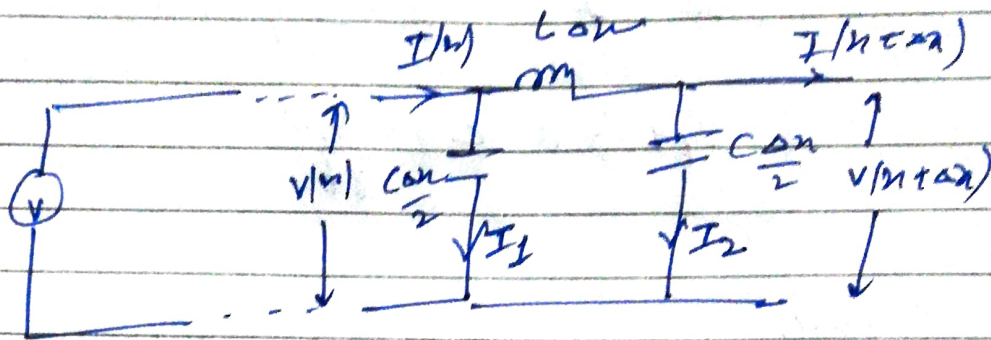 I(x) LΔx I(x+Δx)
V V(x) CΔx/2 CΔx/2 V(x+Δx)
I1 I2